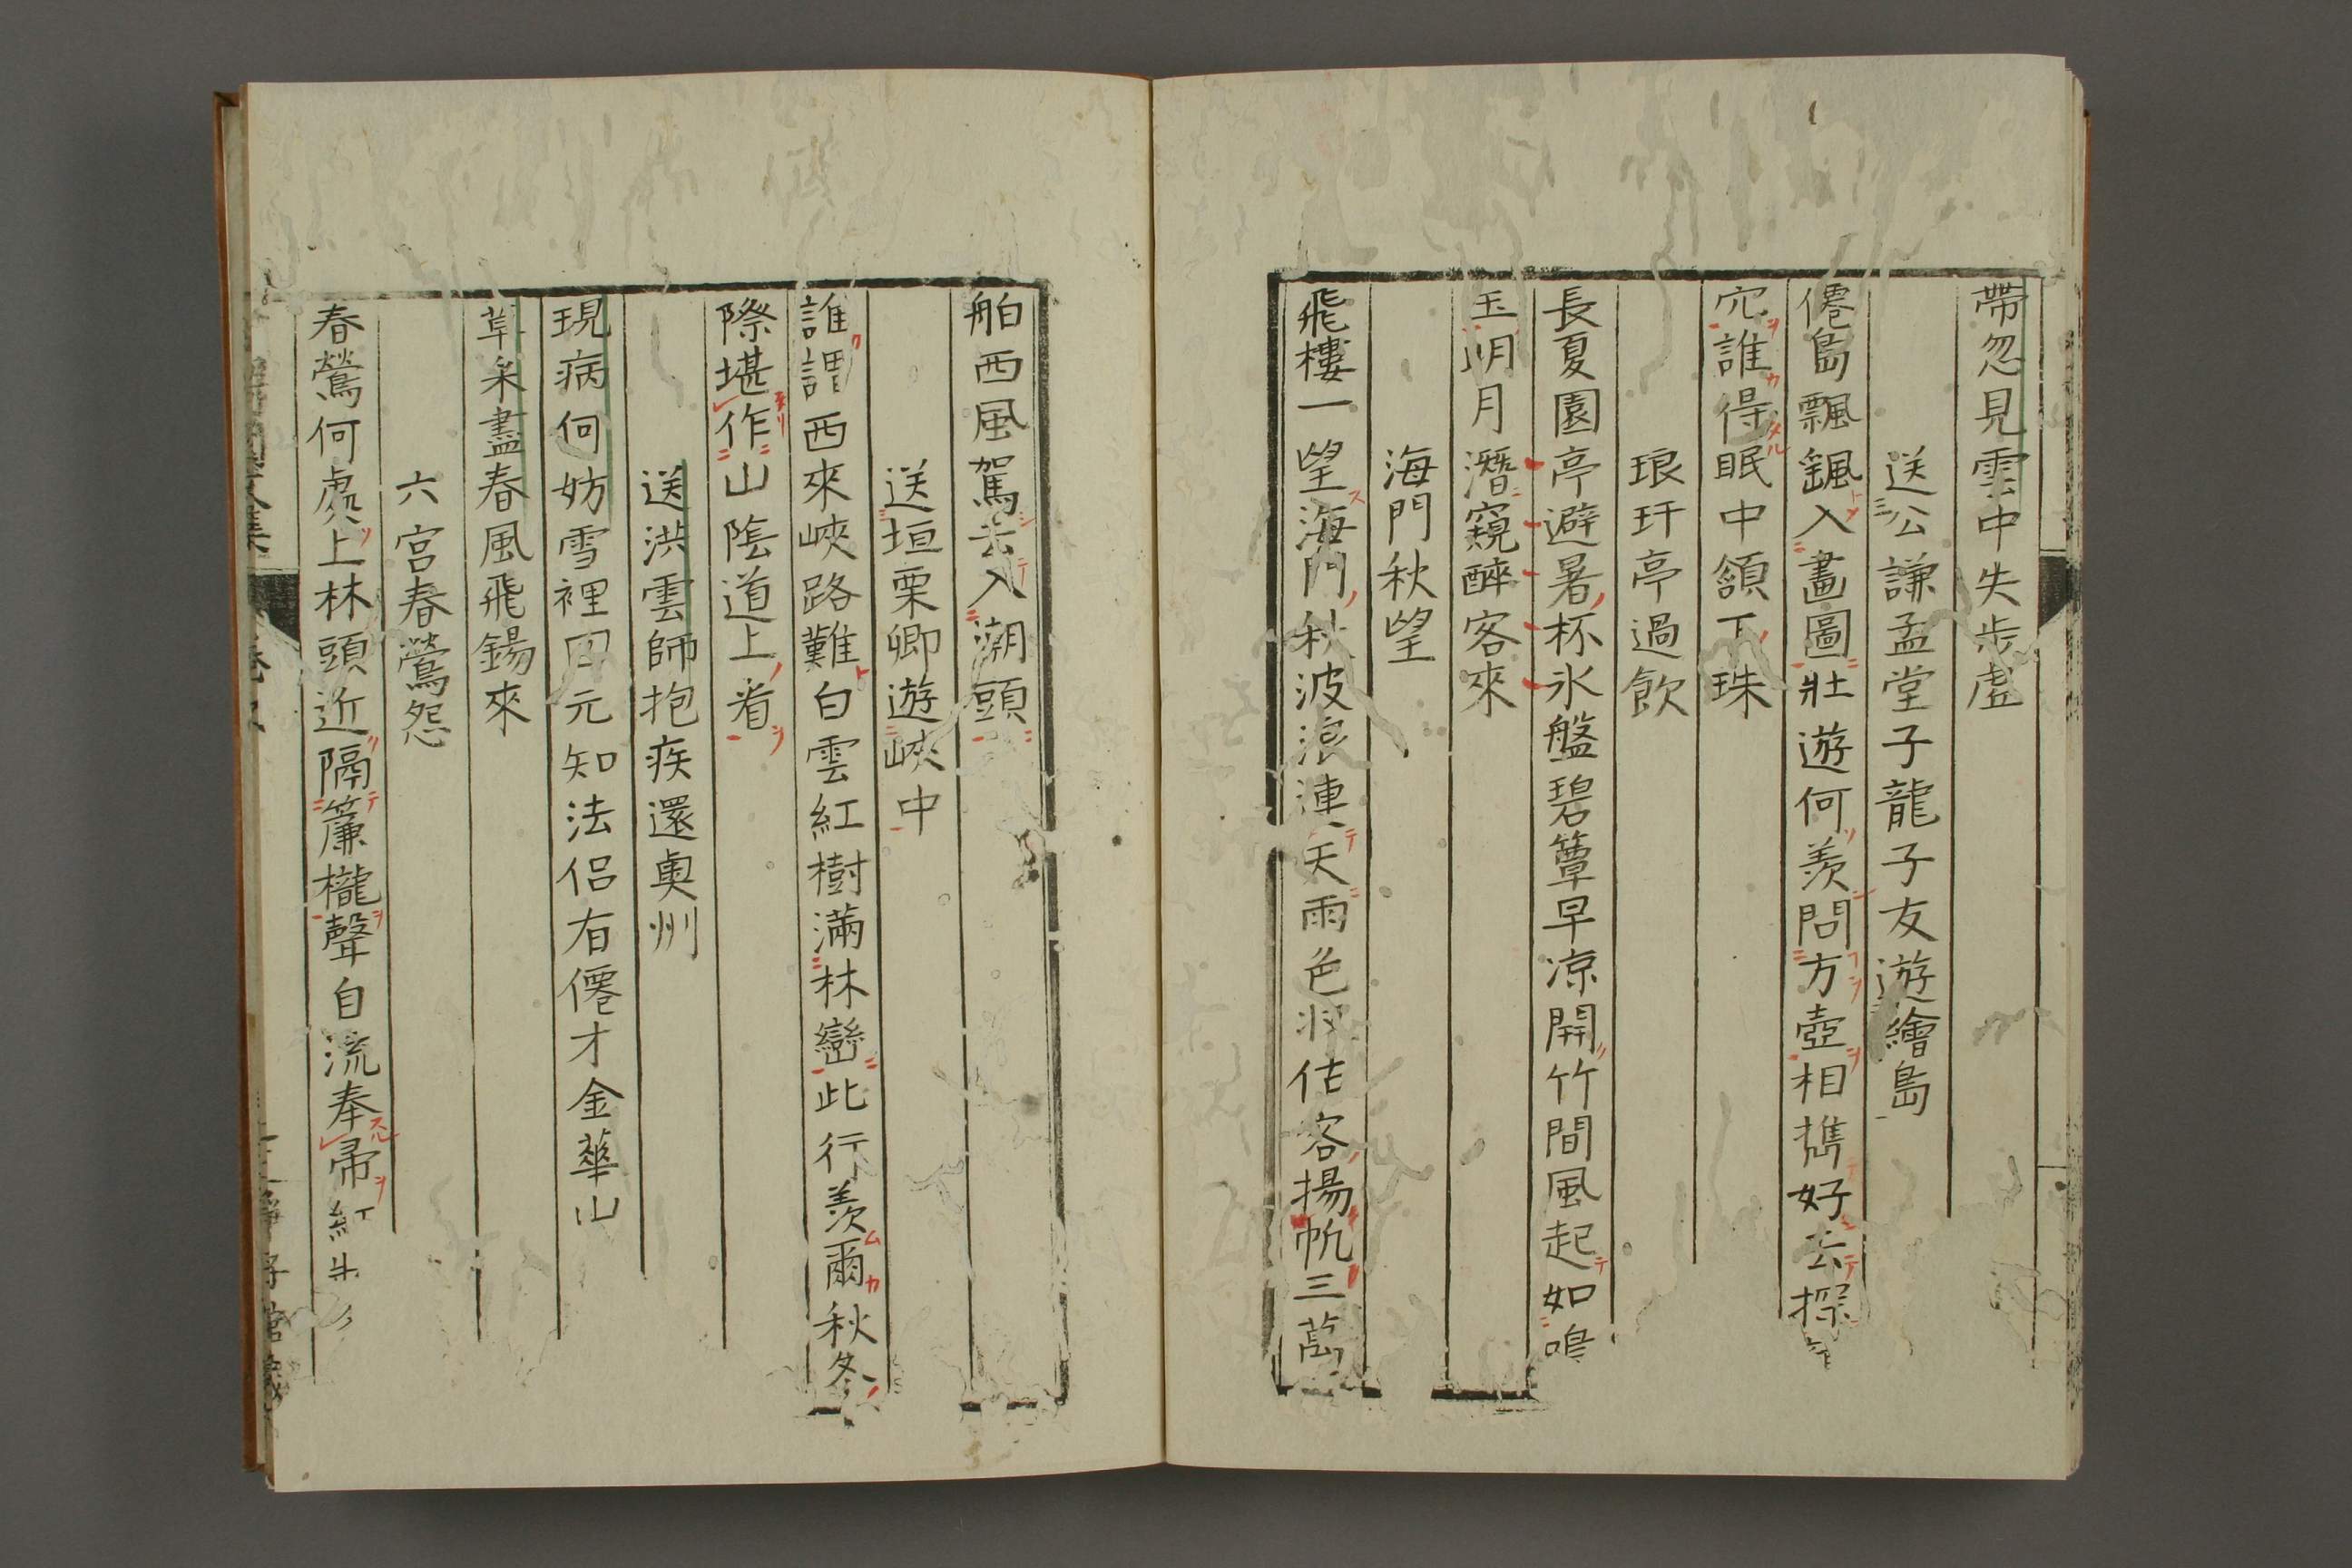 帶忽見雲中失步虛
送公謙孟堂子龍子友遊繪島
僊島飄颻入畫圖壯遊何羨問方壺相攜好去探
穴誰得眠中頷下珠
琅玕亭過飲
長夏園亭避暑杯氷盤碧簟早凉開竹間風起如鳴
玉明月潛窺醉客來
海門秋望
飛樓一望海門秋波浪連天雨色收估客揚帆三萬
舶西風駕去入潮頭
送垣栗卿遊峽中
誰謂西來峽路難白雲紅樹滿林巒此行羨爾秋冬
際堪作山陰道上看
送洪雲師抱疾還奧州
現病何妨雪裡回元知法侶有僊才金華山
草采盡春風飛錫來
六宮春鶯怨
春鶯何處上林頭近隔簾櫳聲自流奉帚紅